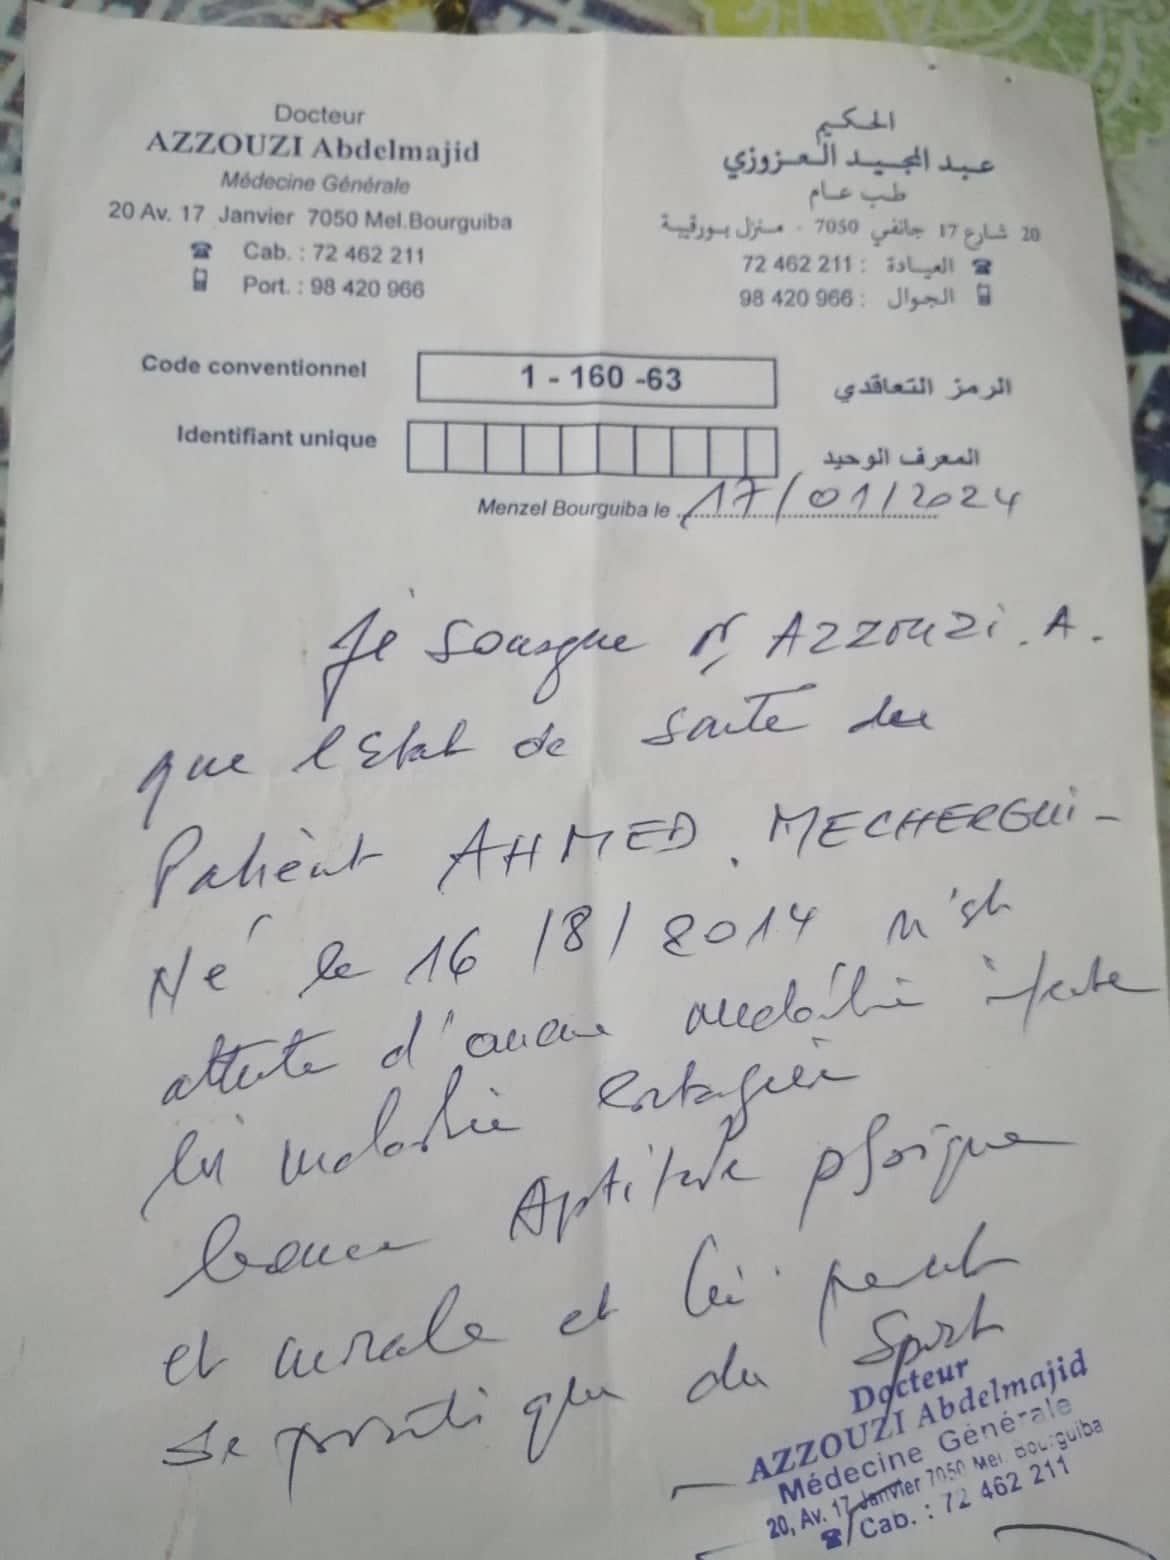 Docteur
AZZOUZI Abdelmajid
Médecine Générale
20 Av. 17 Janvier 7050 Mel.Bourguiba
Cab. : 72 462 211
Port. : 98 420 966
الحكيم
عبد المجيد العزوزي
طب عام
20 شارع 17 جانفي 7050 - منزل بورقيبة
العيادة : 72 462 211
الجوال : 98 420 966
Code conventionnel 1 - 160 -63 الرمز التعاقدي
Identifiant unique المعرف الوحيد
Menzel Bourguiba le 17/01/2024
Je sousigne Dr AZZOUZI . A .
que l'Etat de sante du
Patient AHMED . MECHERGUI -
Né le 16 /8/ 2014 n'est
atteinte d'aucune maladie infecte
ni maladie contagieuse
bonne Aptitude physique
et morale et lui permet
de pratique du Sport
Docteur
AZZOUZI Abdelmajid
Médecine Générale
20, Av. 17 Janvier 7050 Mel. Bourguiba
Cab. : 72 462 211